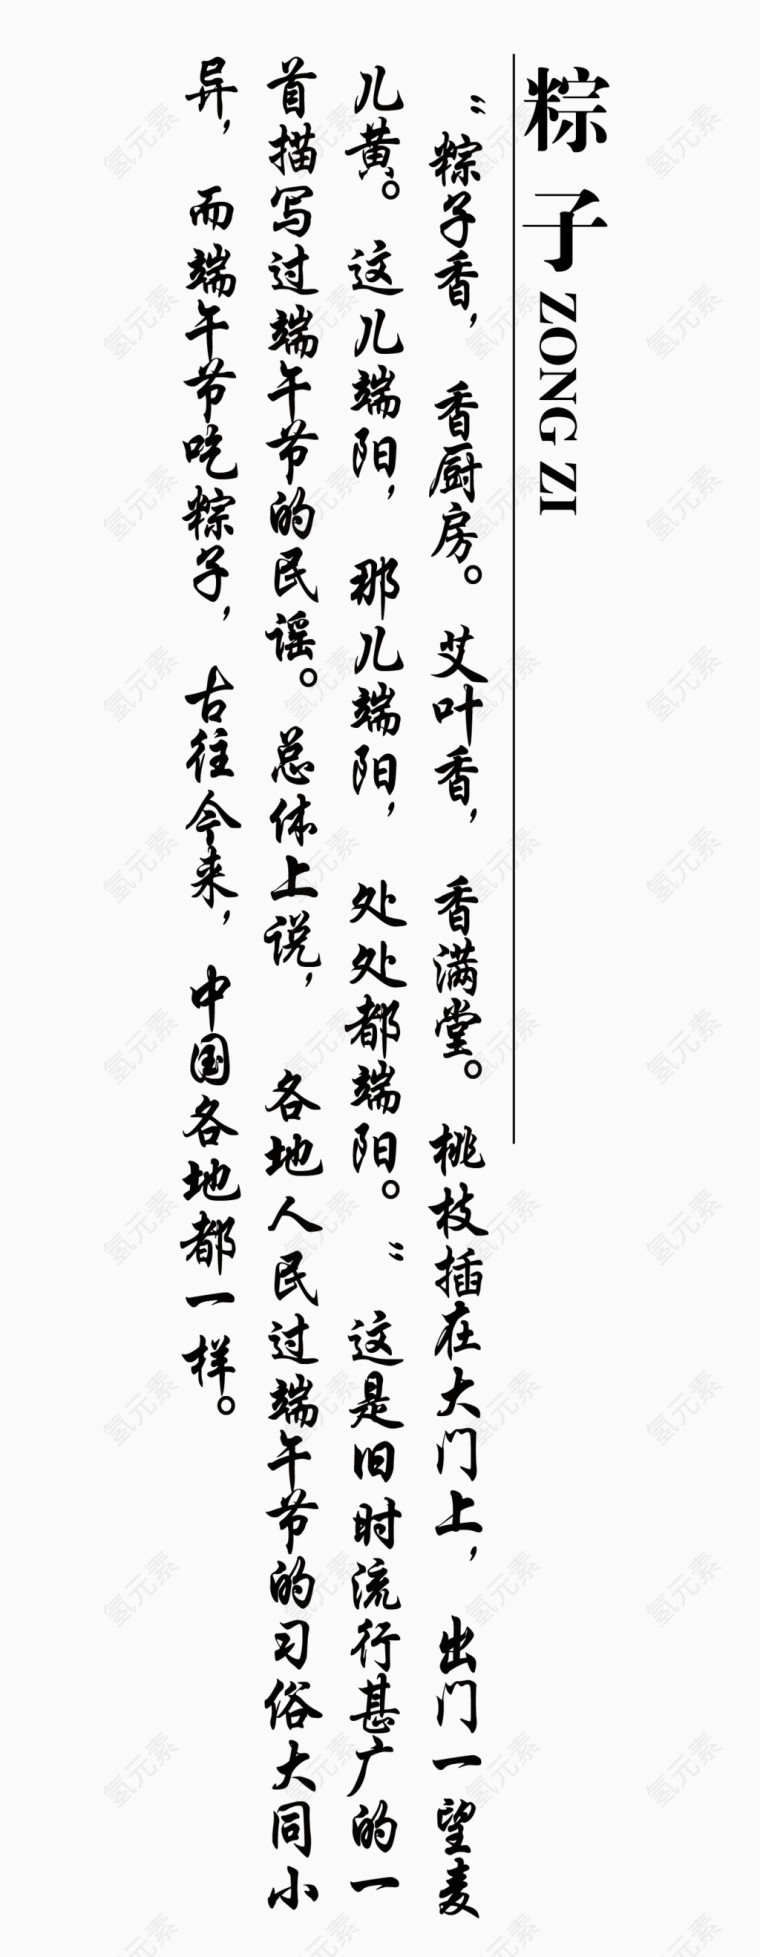 粽子 ZONG ZI
“粽子香，香厨房。艾叶香，香满堂。桃枝插在大门上，出门一望麦
儿黄。这儿端阳，那儿端阳，处处都端阳。”这是旧时流行甚广的一
首描写过端午节的民谣。总体上说，各地人民过端午节的习俗大同小
异，而端午节吃粽子，古往今来，中国各地都一样。
氢元素